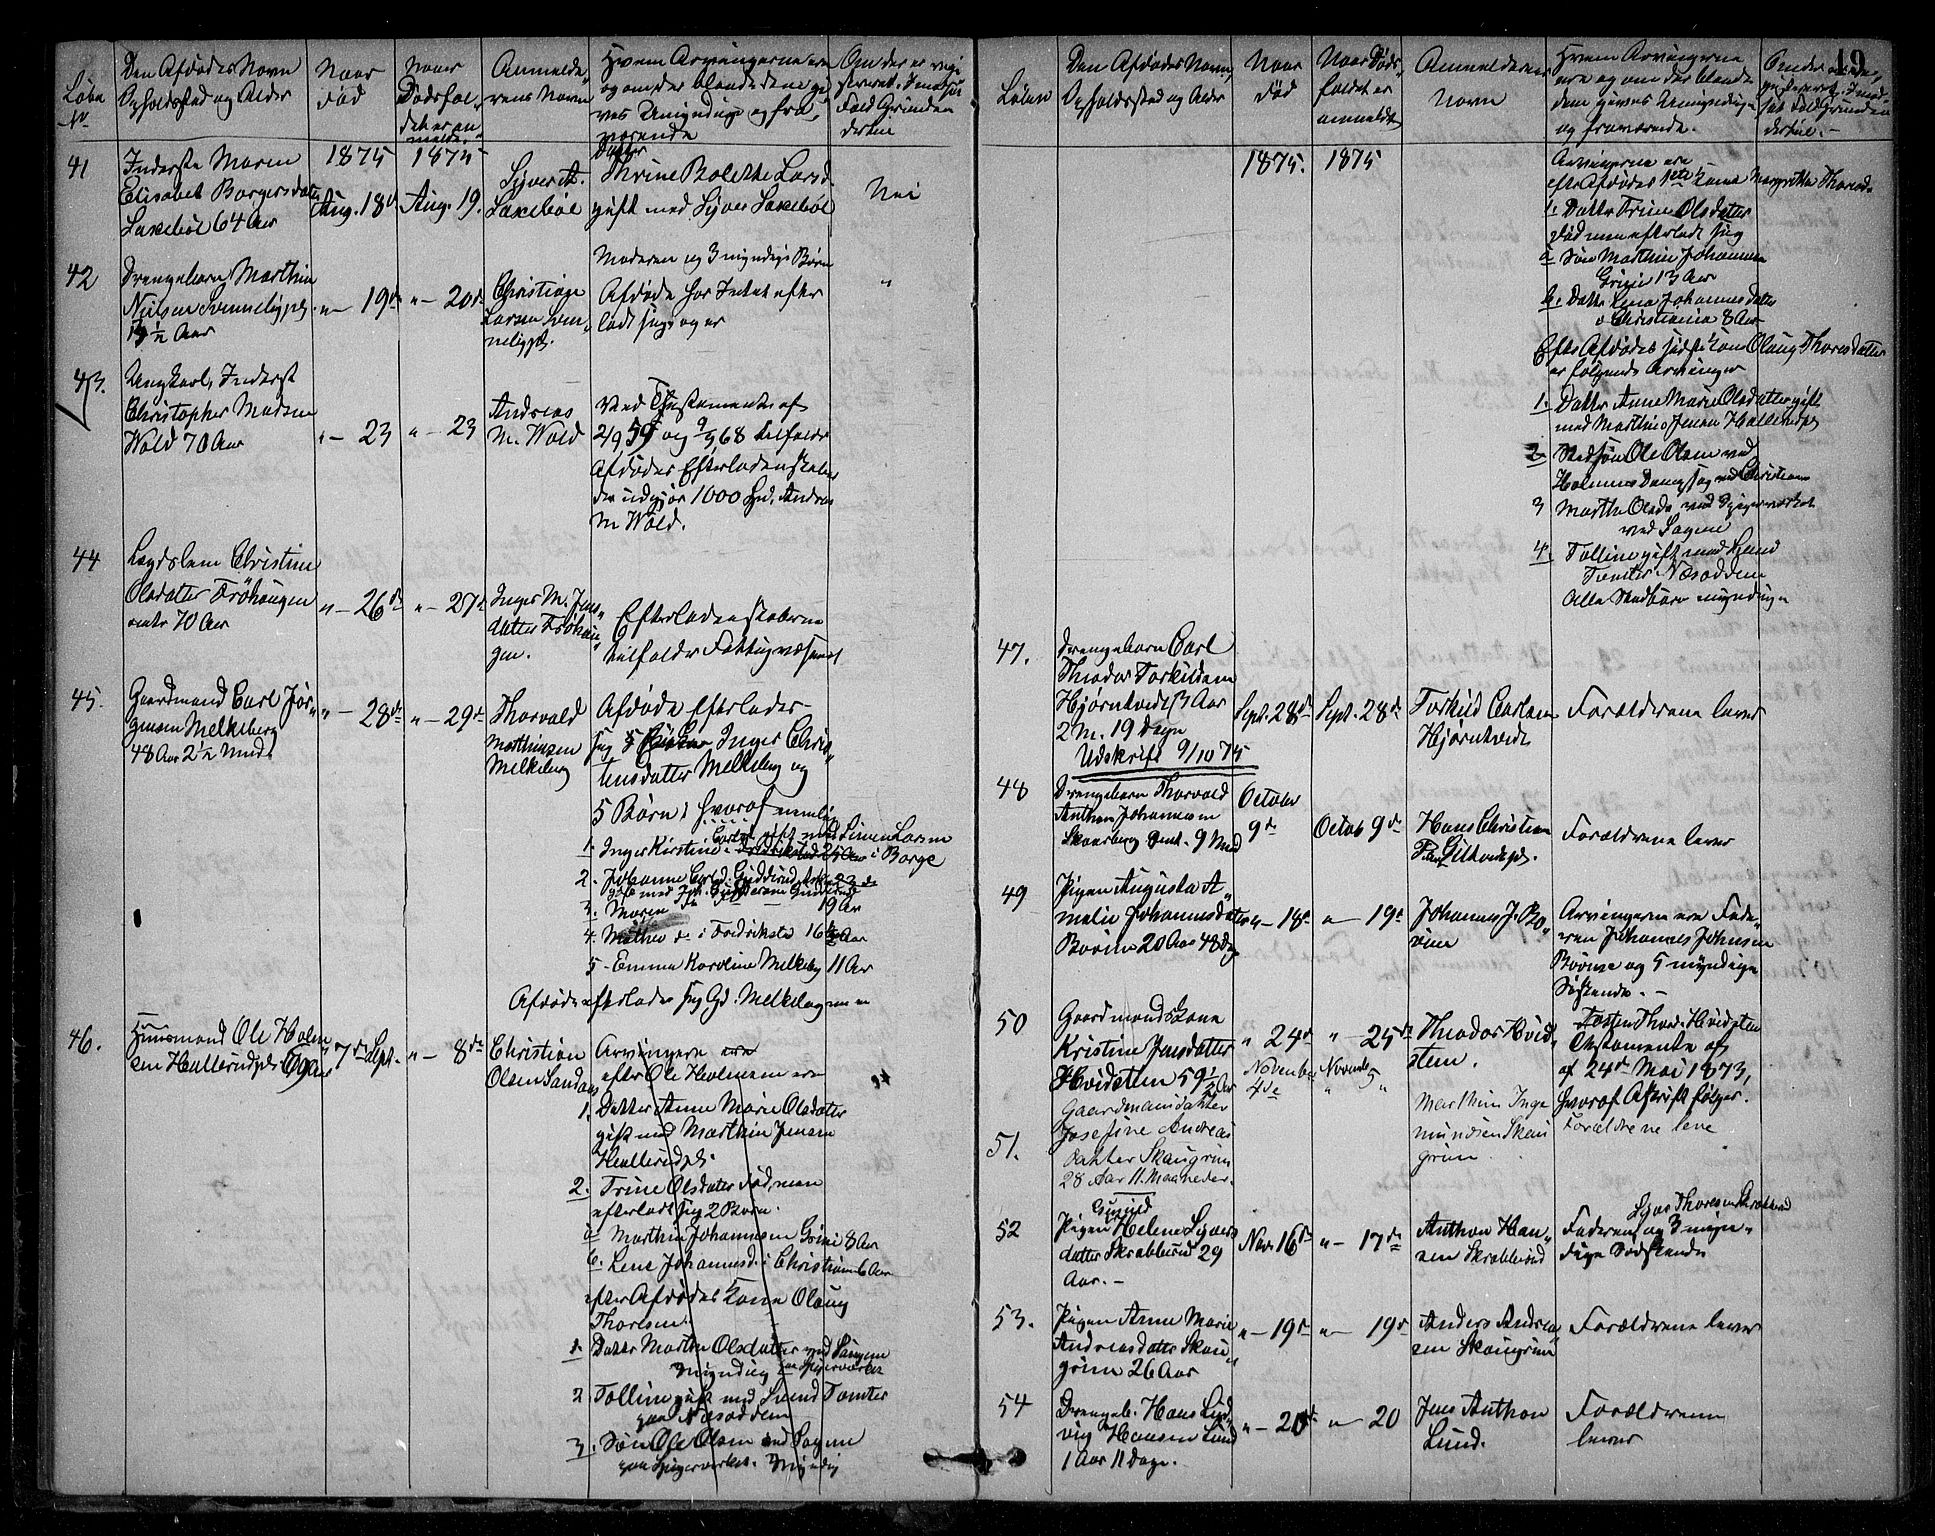 19
Løbe
No
Den Afdødes Navn
Opholdssted og Alder
Naar
død
Naar
Dødsfal-
det er an-
meldt.
Anmelde-
rens Navn
Hvem Arvingerne ere
og om der blandt dem gi-
ves Umyndige og fra-
værende
Om der er regi-
streret, I modsat
Fald Grunden
dertil
41
Inderste Maren
Elisabet Borgersdatter
Laxebøl 64 Aar
1875
Aug. 18d
1875
Aug. 19.
Syver A.
Laxebøl
Datter
Thrine Bolette Larsd.
gift med Syver Laxebøl
Nei
42
Drengebarn Marthin
Nilsen
1/2 Aar
" — 19de
" — 20de
Christiane
Larsen
Moderen og 3 myndige Børn
Afdøde har Intet efter
ladt sig
"
43.
Ungkarl, Inderst
Christopher Madsen
Wold 70 Aar
" — 23
" — 23
Andreas
M. Wold
Ved Testamente af
2/9 59 og 9/9 68 tilfalder
Afdødes Efterladenskaber
der udgjør 1000 Spd. Andreas
M Wold.
44
Lægdslem Christine
Olsdatter Frøhaugen
omtr 70 Aar
" — 26de
" — 27de
Inger M. Jens
datter Frøhau-
gen.
Efterladenskaberne
tilfalder Fattigvæsenet
45.
Gaardmand Carl Jør-
gensen Melkeberg
48 Aar 2 1/2 Mndr
" — 28de
" — 29de
Thorvald
Marthinsen
Melkeberg
Afdøde Efterlader
sig Inger Chris-
tensdatter Melkeberg og
5 Børn, hvoraf nemlig
1. Inger Kirstine Carlsd. gift med Simen Larsen
Fredrikstad 25 Aar i Borge
2. Johanne Carlsd.
gift med
3. Maren 19 Aar
4. Mathea do i Fredriksta 16 Aar
5 - Emma Karoline Melkeby 11 Aar
Afdøde efterlader sig Gd. Melkeby
46.
Huusmand Ole Holm
sen Hallerudpl. Aar
7de Sept.
" — 8de
Christian
Olsen Sandaas
Arvingere ere
efter Ole Holmsen ere
1. Datter Anne Marie Olsdatter
gift med Marthin Jensen
Hallerudpl.
2. Trine Olsdatter død, men
efterladt sig 2 Børn.
a Marthin Johannesen Grini 8 Aar
b. Lene Johannesd. i Christiania 6 Aar
efter Afdødes Kone Olaug
Thoresen.
1. Datter Marthe Olsdatter ved Sagene
Myndig paa Spigerværket
2 Tolline gift med Svend Tomter
paa Næsodden
3. Søn Ole Olsen ved Sagene
paa Spigerværket. Myndig
Løbe
Den Afdødes Navn,
Opholdssted og Alder
Naar
død
Naar Døds-
faldet er
anmeldt
Anmelderens
Navn
Hvem Arvingerne
ere og om der blandt
dem gives Umyndige
og fraværende.
Om der er
registreret, I mod-
sat Fald Grunden
dertil. —
1875.
1875
Arvingerne ere
efter Afdødes 1ste Kone Margrethe Thoresd.
1. Datter Trine Olsdatter
Død men efterladt sig
a Søn Marthin Johannesen
Grini 13 Aar
b. Datter Lena Johannesdatter
i Christiania 8 Aar
Efter Afdødes sidste Kone Olaug Thoresdatter
er følgende Arvinger
1. Datter Anne Marie Olsdatter gift
med Marthin Jensen Hallerudpl.
2 Stedsøn Ole Olsen ved
Holmens Dampsag ved Christiania
3 Marthe Olsd. ved Spigerværket
ved Sagene
4. Tolline gift med Svend
Tomter Næsodden
Alle Stedbørn myndige
47.
Drengebarn Carl
Theodor Torkildsen
Hjørntvedt 3 Aar
2 M. 19 Dage
Udskrift 9/10 75
Sept. 28de
Sept. 28de
Torkild Carlsen
Hjørntvedt
Forældrene lever
48
Drengebarn Thorvald
Anthon Johannesen
Skonsberg 9 Mnd
October
9de
Octob 9de
Hans Christian
Forældrene lever
49
Pigen Augusta A-
malie Johannesdatter
Bovim 20 Aar 48 Dg
" — 18de
" — 19de
Johannes J. Bo-
vim
Arvingerne ere Fade-
ren Johannes Johnsen
Bovim og 5 myndige
Søskende. —
50
Gaardmandskone
Kristine Jensdatter
Hvidsten 59 1/2 Aar
" 24de
" — 25de
Theodor Hvid-
sten.
Testamente af
af 24de Mai 1873,
hvoraf Afskrift følger.
51.
Gaardmansdatter
Josefine Andreas
datter Skaugrim
28 Aar 11 Maaneder.
November
4de
Novemb.
" 5 "
Marthin Inge
mundsen Skau
grim
Forældrene leve
52
Gunild
Pigen Helene Syvers
datter Skrabberud 29
Aar. —
Nov. 16de
" — 17de
Anthon Han-
sen Skrabberud
Syver Thoresen Skrabberud
Faderen og 3 myn-
dige Søskende
53.
Pigen Anne Marie
Andreasdatter Skau-
grim 26 Aar
" — 19de
" — 19de
Anders Andrea
sen Skaugrim
Forældrene lever
54
Drengeb. Hans Lud-
vig Hansen Lund
1 Aar 11 Dage.
" — 20de
" — 20
Jens Anthon
Lund.
Forældrene
lever